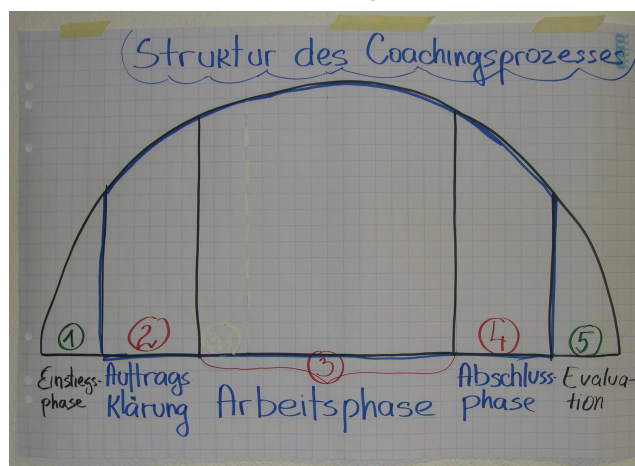 Struktur des Coachingsprozesses
1
2
3
4
5
Einstiegs-
phase
Auftrags
Klärung
Arbeitsphase
Abschluss-
phase
Evalua-
tion